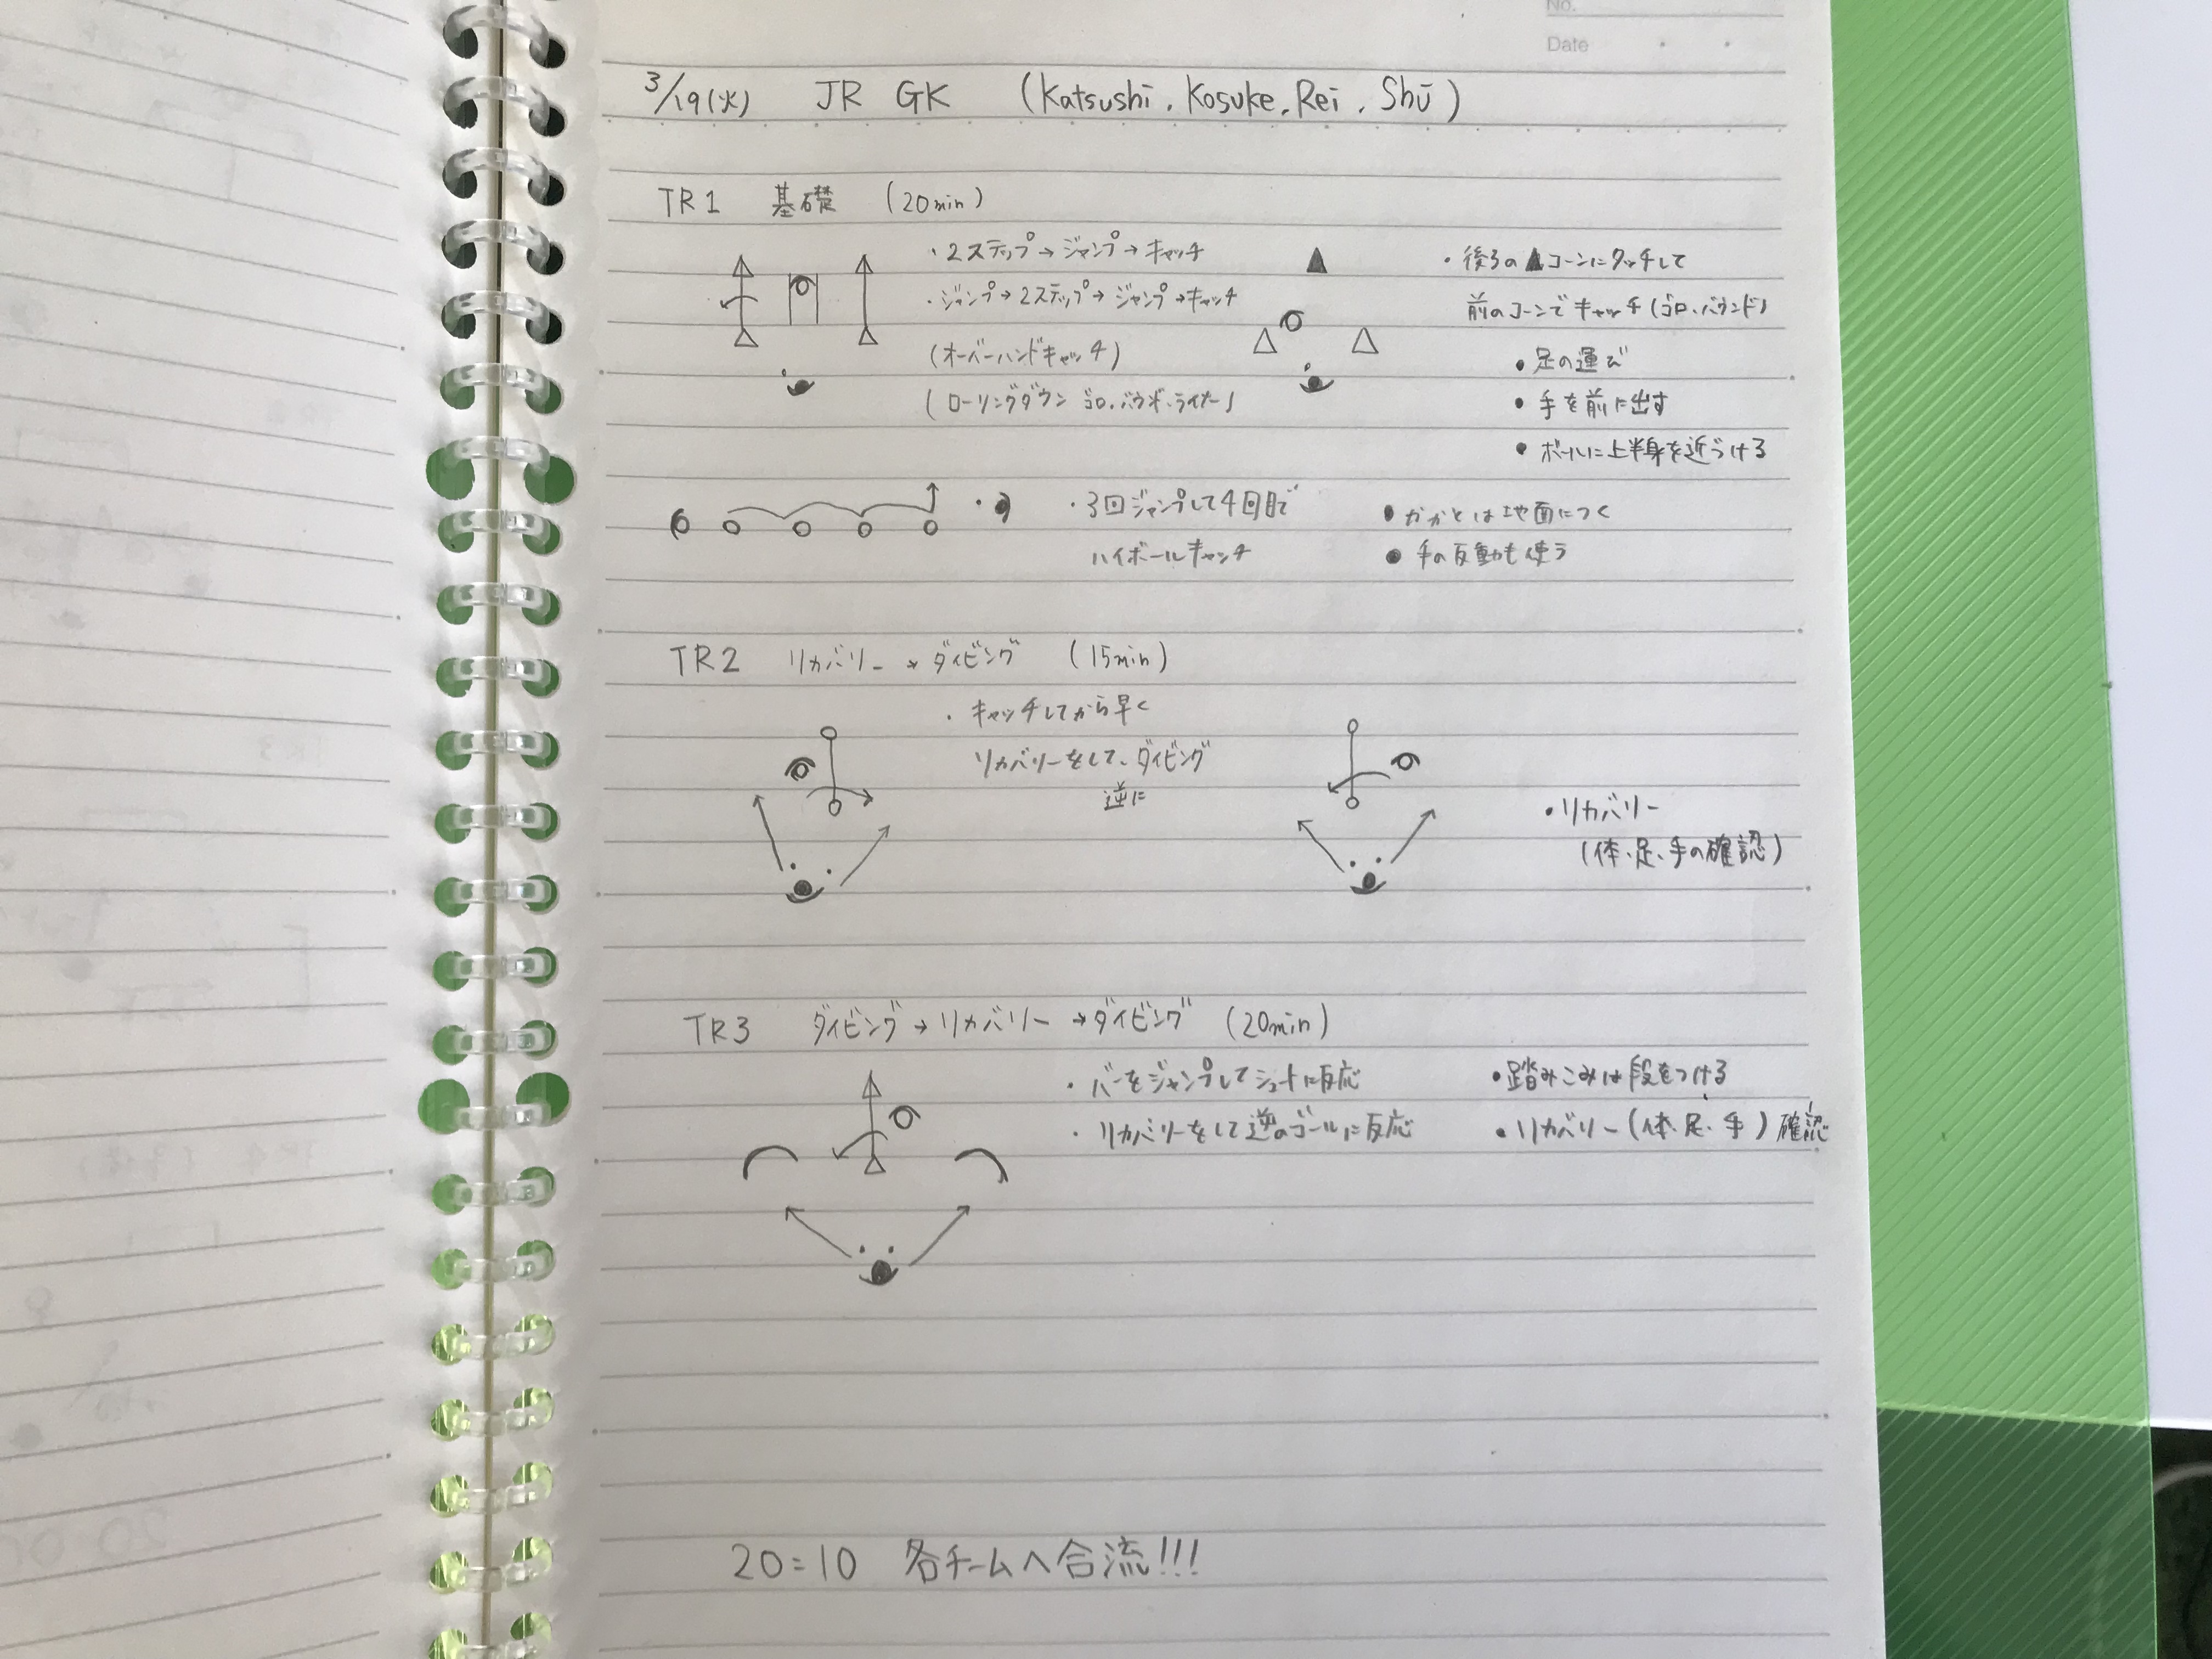 No.
Date
3/19(火) JR GK (Katsushi, Kosuke, Rei, Shū)
TR1 基礎 (20min)
・2ステップ→ジャンプ→キャッチ
・ジャンプ→2ステップ→ジャンプ→キャッチ
(オーバーハンドキャッチ)
(ローリングダウン ゴロ、バウンド、ライナー)
・後ろの▲コーンにタッチして
前のコーンでキャッチ(ゴロ、バウンド)
●足の運び
●手を前に出す
●ボールに上半身を近づける
・3回ジャンプして4回目で
ハイボールキャッチ
●かかとは地面につく
●手の反動も使う
TR2 リカバリー→ダイビング (15min)
・キャッチしてから早く
リカバリーをして、ダイビング
逆に
●リカバリー
(体、足、手の確認)
TR3 ダイビング→リカバリー→ダイビング (20min)
・バーをジャンプしてシュートに反応
・リカバリーをして逆のゴールに反応
●踏みこみは段をつける
●リカバリー(体、足、手)確認
20:10 各チームへ合流!!!